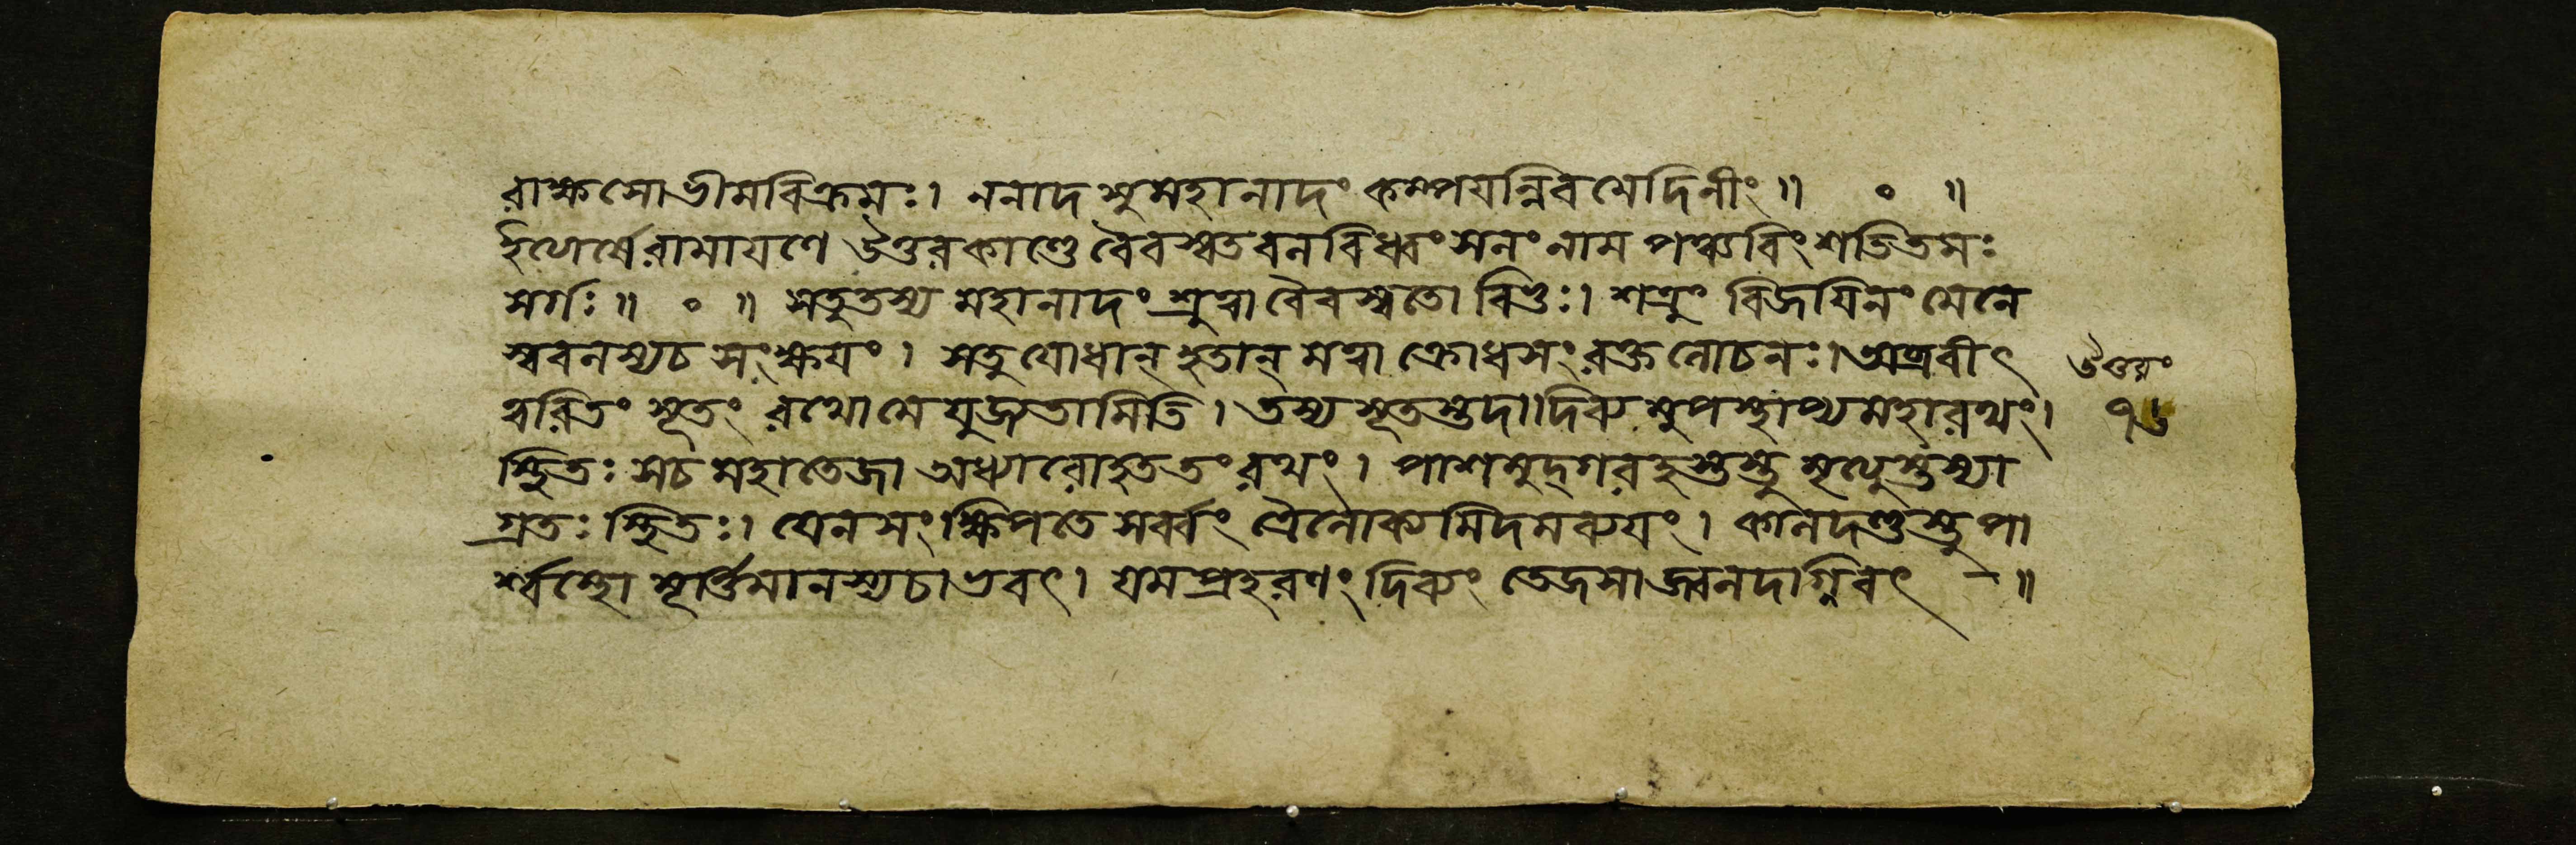 রাক্ষসো ভীমবিক্রমঃ। ননাদ সুমহানাদং কম্পযন্নিব মেদিনীং॥ ॰ ॥
ইত্যার্ষে রামাযণে উত্তরকাণ্ডে বৈবস্বতবনবিধ্বংসনং নাম পঞ্চবিংশতিতমঃ
সর্গঃ॥ ॰ ॥ সতু তস্য মহানাদং শ্রুত্বা বৈবস্বতো বিভুঃ। শত্রুং বিজযিনং মেনে
স্ববনস্যচ সংক্ষযং। সতু যোধান্ হতান্ মত্বা ক্রোধসংরক্তলোচনঃ। অব্রবীৎ
ত্বরিতং সূতং রথো মে যুজ্যতামিতি। তস্য সূতস্তদা দিব্যমুপস্থাপ্য মহারথং।
স্থিতঃ সচ মহাতেজা অধ্যারোহত তং রথং। পাশমুদ্গরহস্তস্তু মৃত্যুস্তস্যা
গ্রতঃ স্থিতঃ। যেন সংক্ষিপতে সর্ব্বং ত্রৈলোক্যমিদমব্যযং। কালদণ্ডস্তু পা
র্শ্বস্থো মূর্ত্তিমানস্যচাভবৎ। যমপ্রহরণং দিব্যং তেজসা জ্বলদগ্নিবৎ - ॥
উত্তরং